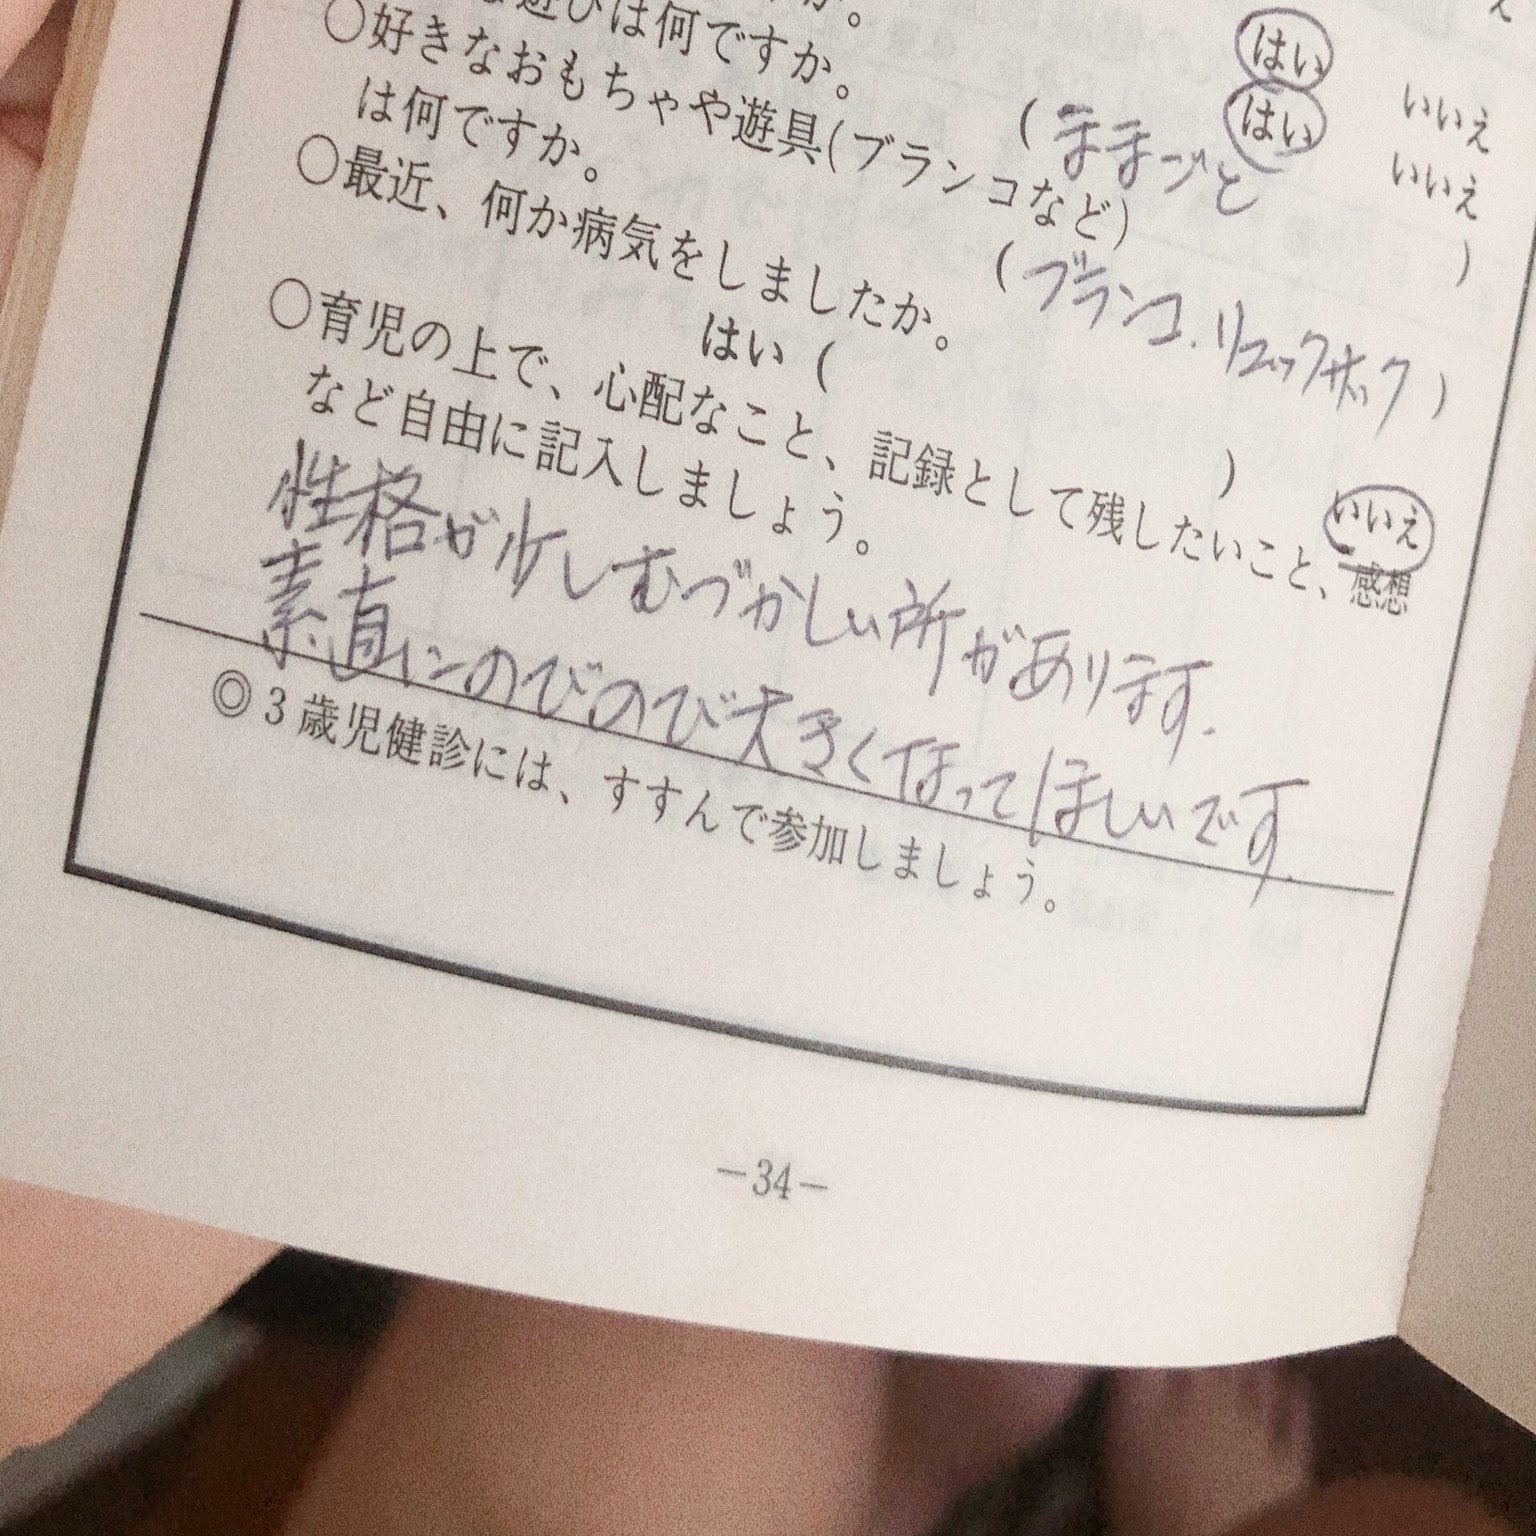 遊びは何ですか。
はい いいえ
はい いいえ
(ままごと )
○好きなおもちゃや遊具(ブランコなど)
は何ですか。
(ブランコ.リュックサック)
○最近、何か病気をしましたか。
はい ( ) いいえ
○育児の上で、心配なこと、記録として残したいこと、感想
など自由に記入しましょう。
性格が少しむづかしい所があります.
素直にのびのび大きくなってほしいです.
◎3歳児健診には、すすんで参加しましょう。
-34-